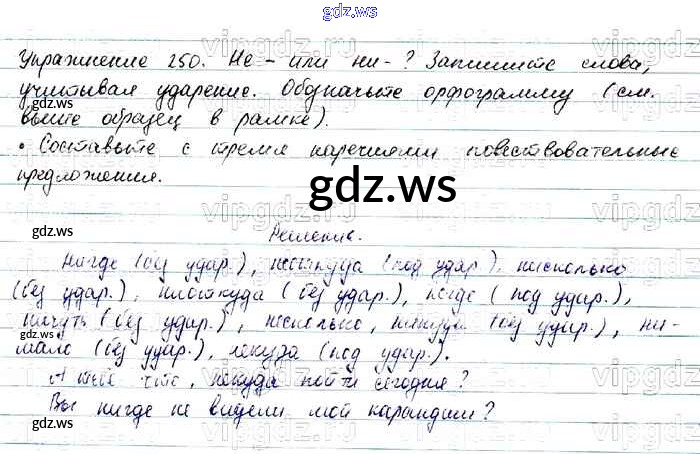 gdz.ws
Упражнение 250. Не- или ни-? Запишите слова,
учитывая ударение. Обозначьте орфограмму (см.
выше образец в рамке).
• Составьте с тремя наречиями повествовательные
предложения.
gdz.ws
Решение.
Нигде (без удар.), неоткуда (под удар.), нисколько
(без удар.), ниоткуда (без удар.), негде (под удар.),
ничуть (без удар.), несколько, никуда (без удар.), ни-
мало (без удар.), некуда (под удар.).
А тебе что, некуда пойти сегодня?
Вы нигде не видели мой карандаш?
gdz.ws